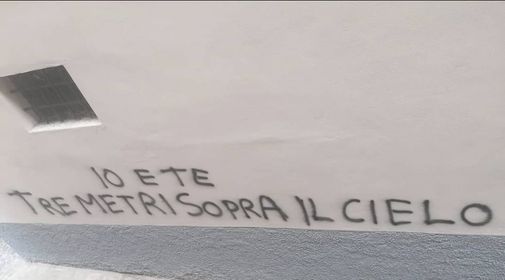 IO E TE
TRE METRI SOPRA IL CIELO